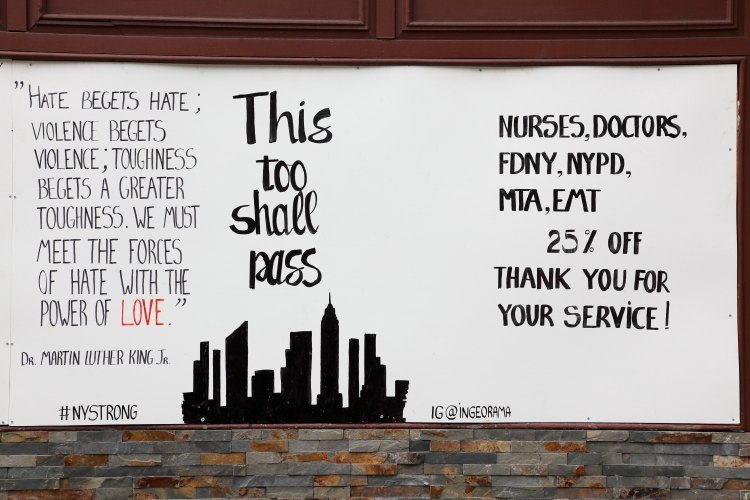 "HATE BEGETS HATE;
VIOLENCE BEGETS
VIOLENCE; TOUGHNESS
BEGETS A GREATER
TOUGHNESS. WE MUST
MEET THE FORCES
OF HATE WITH THE
POWER OF LOVE."
DR. MARTIN LUTHER KING JR.
#NYSTRONG
This
too
shall
pass
NURSES, DOCTORS,
FDNY, NYPD,
MTA, EMT
25% OFF
THANK YOU FOR
YOUR SERVICE!
IG@INGEORAMA